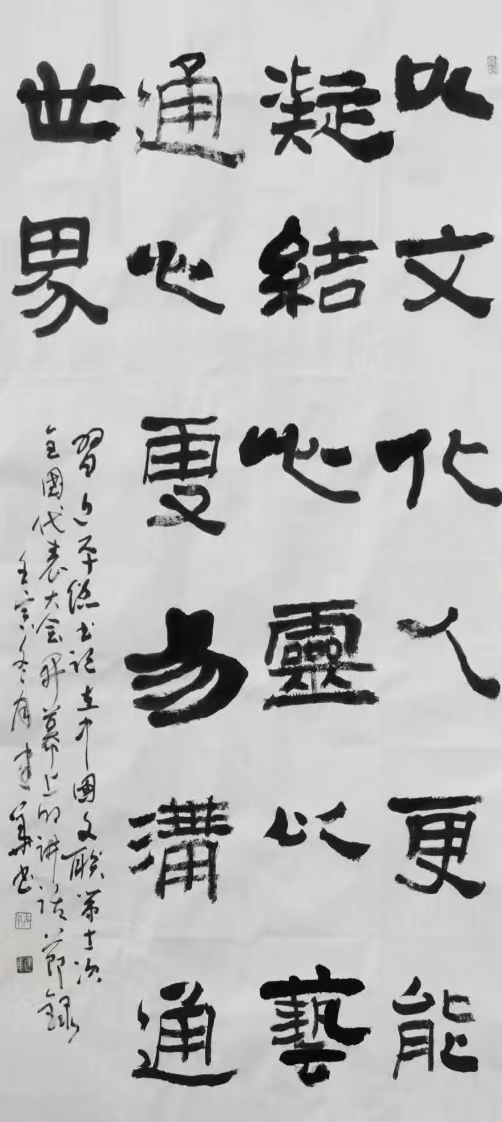 以文化人更能
凝結心靈以藝
通心更易溝通
世界
習近平總书记在中國文联第十一次
全國代表大会開幕上的讲话節録
壬寅冬月建華书